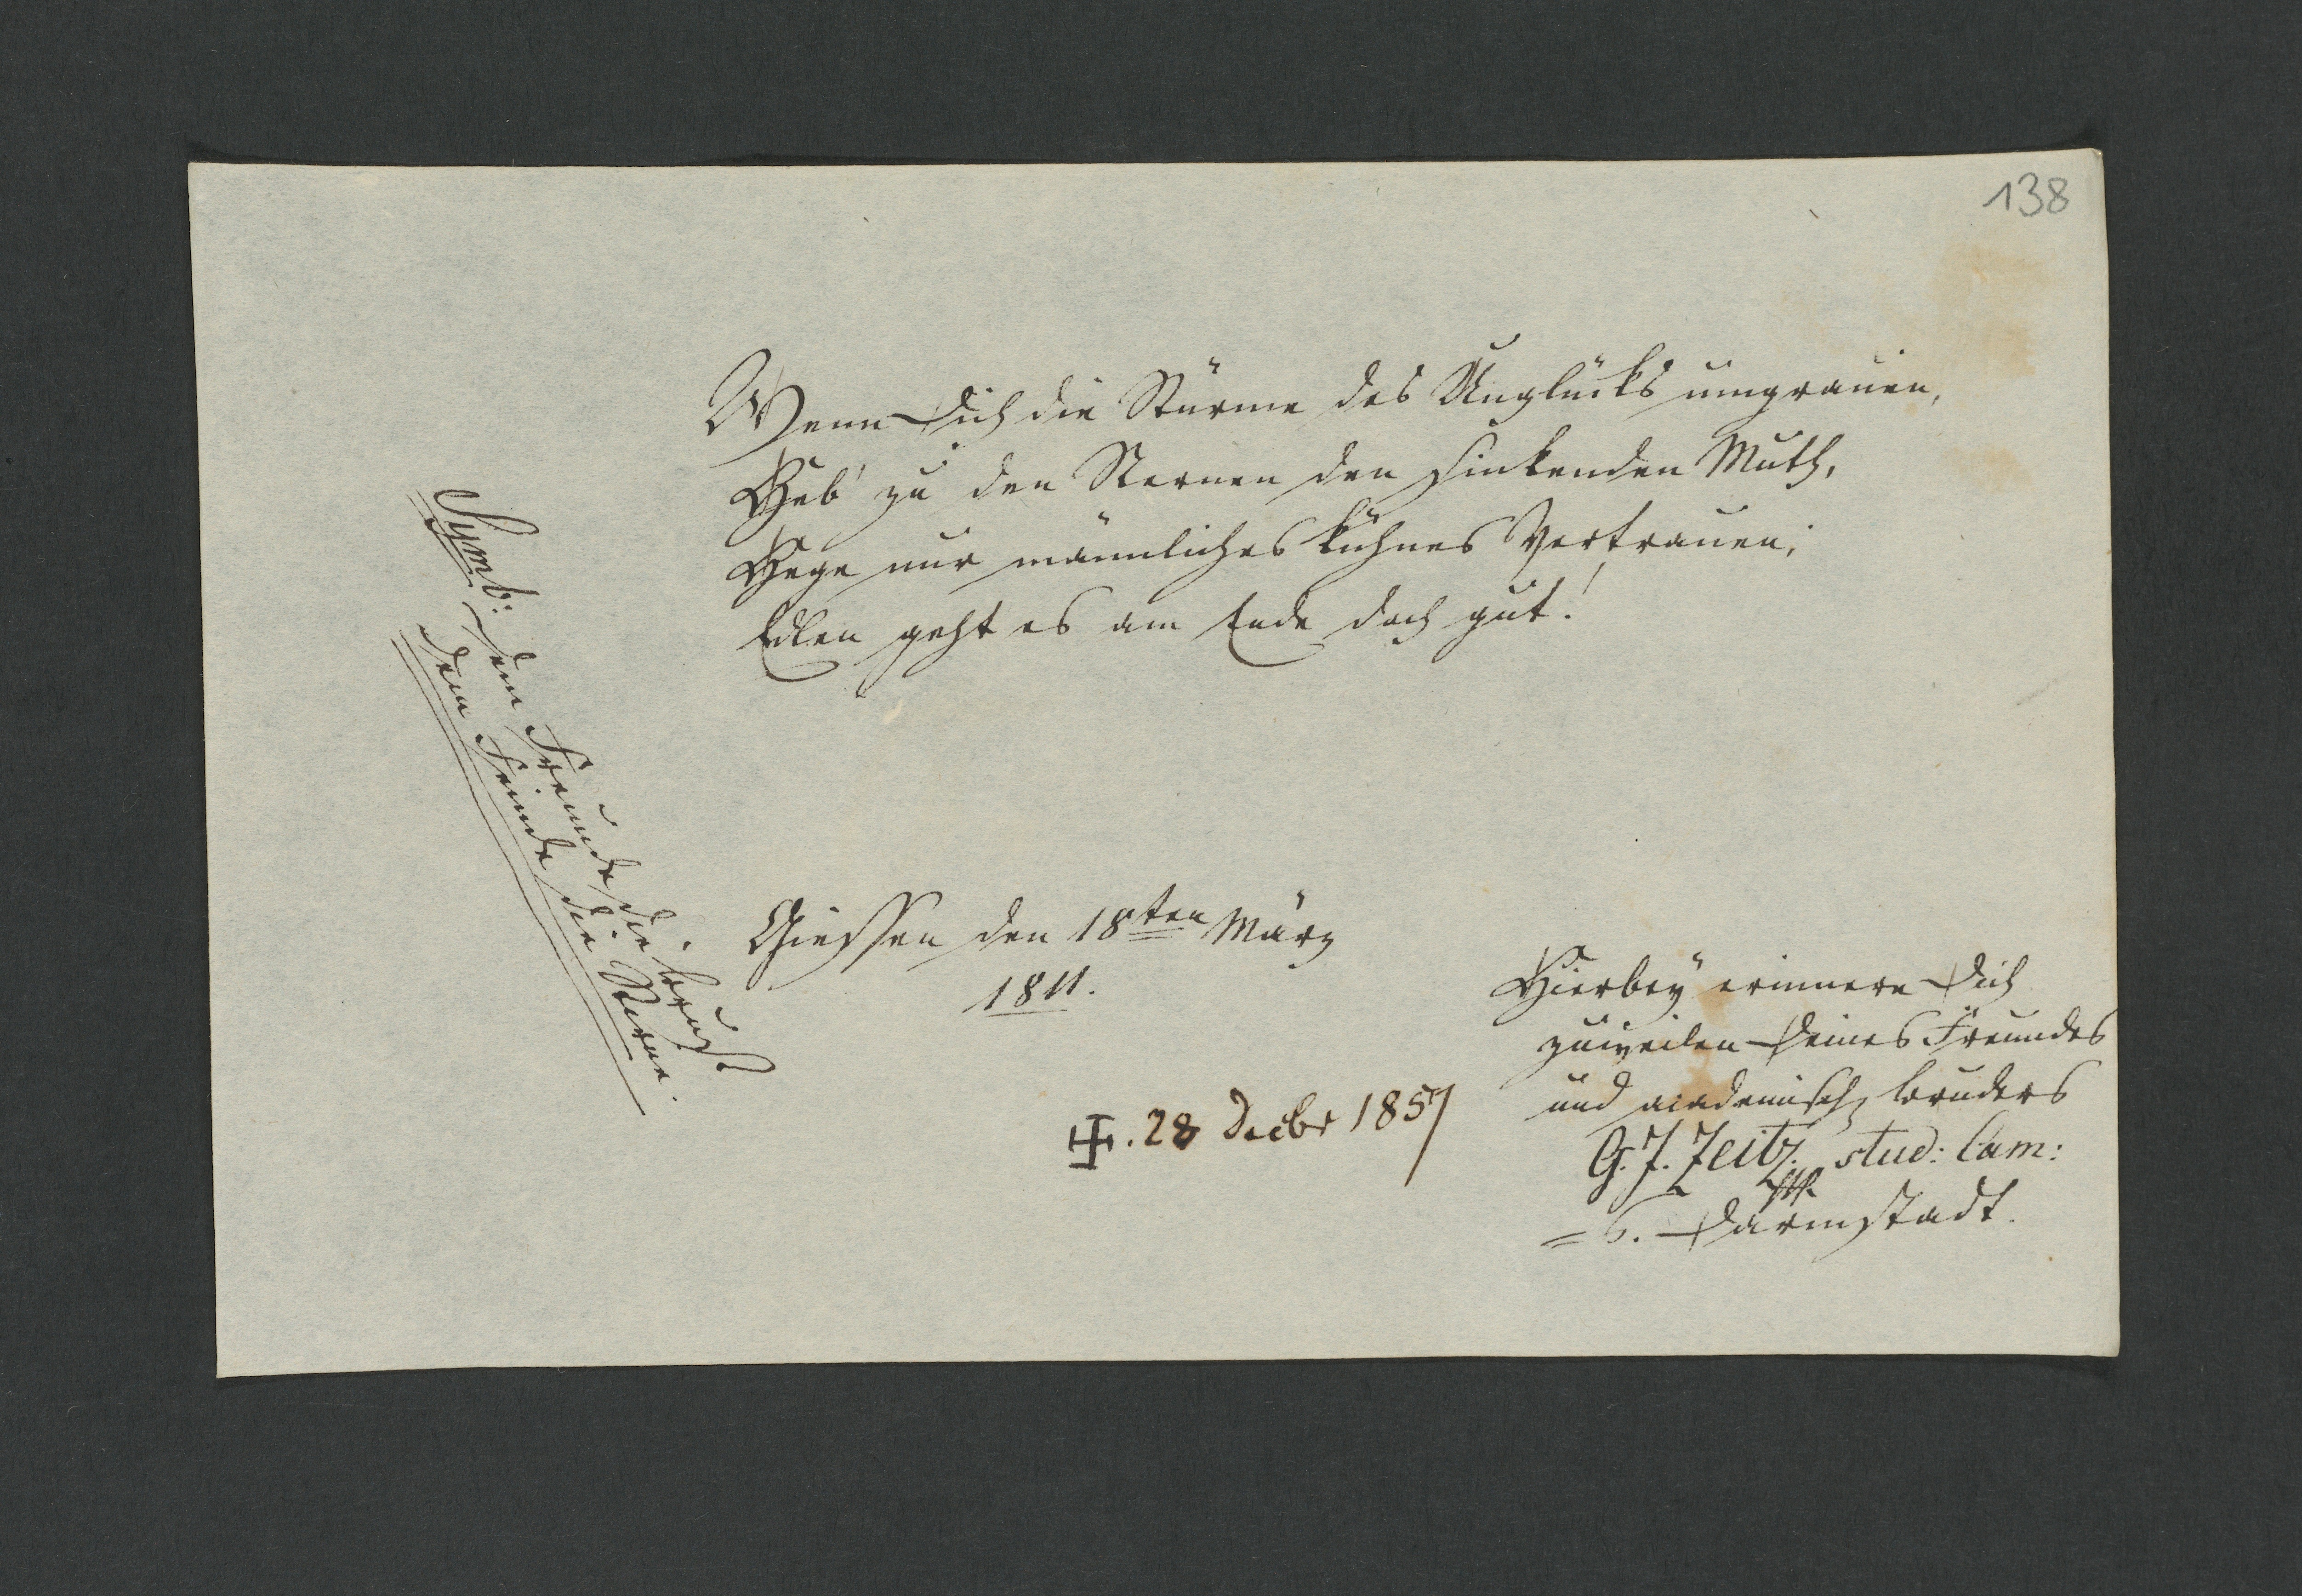 138
Wenn Dich die Stürme des Unglücks umgrauen,
Heb' zu den Sternen den sinkenden Muth,
Hege nur männliches kühnes Vertrauen;
Edlen geht es am Ende doch gut!
Symb: Dem Freunde die Brust
Dem Feinde die Stirne.
Giessen den 18ten März
1811.
Hierbey erinnere Dich
zuweilen Deines Freundes
und academisch Bruders
G. J. Zeitz. stud: Cam:
Darmstadt.
28 Decbr 1857